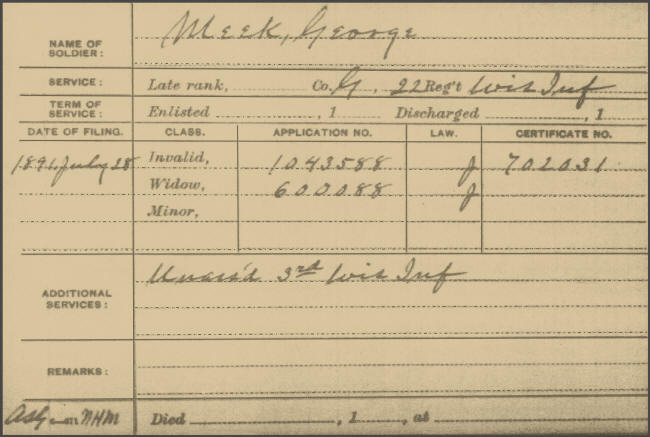 NAME OF SOLDIER: Meek, George
SERVICE: Late rank, Co. G, 22 Reg't Wis Inf
TERM OF SERVICE: Enlisted , 1 Discharged , 1
DATE OF FILING. CLASS. APPLICATION NO. LAW. CERTIFICATE NO.
1891, July 28 Invalid, 1043588 J 702031
Widow, 600088 J
Minor,
ADDITIONAL SERVICES: Unass'd 3rd Wis Inf
REMARKS:
Died , 1 , at